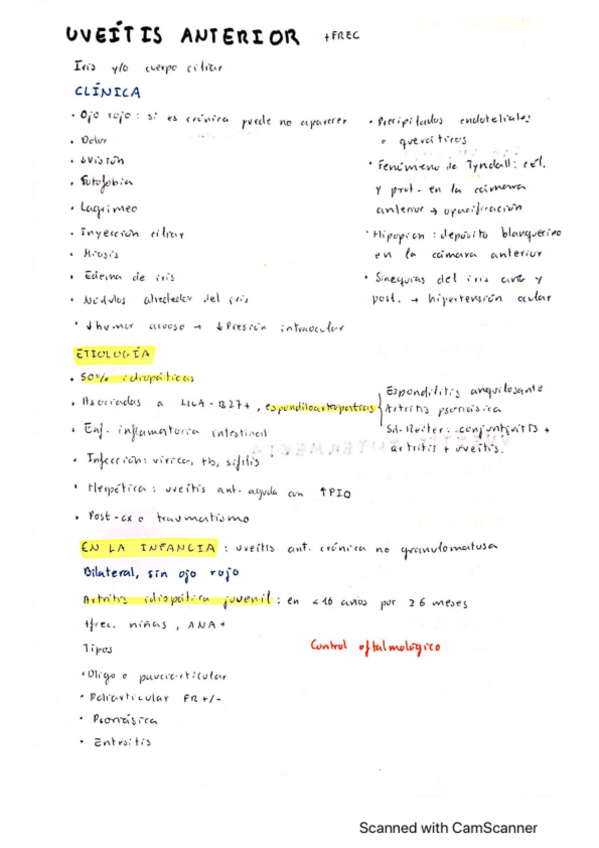 UVEÍTIS ANTERIOR +FREC
Iris y/o cuerpo ciliar
CLÍNICA
· Ojo rojo: si es crónica puede no aparecer
· Dolor
· ↓visión
· Fotofobia
· Lagrimeo
· Inyección ciliar
· Miosis
· Edema de iris
· Nódulos alrededor del iris
· ↓humor acuoso → ↓Presión intraocular
· Precipitados endoteliales
o queráticos
· Fenómeno de Tyndall: cél.
y prot. en la cámara
anterior → opacificación
· Hipopion: depósito blanquecino
en la cámara anterior
· Sinequias del iris ant y
post. → hipertensión ocular
ETIOLOGÍA
· 50% idiopáticas
· Asociadas a HLA-B27+, espondiloartropatías
Espondilitis anquilosante
Artritis psoriásica
Sd. Reiter: conjuntivitis +
artritis + uveítis.
· Enf. inflamatoria intestinal
· Infección: vírica, tb, sífilis
· Herpética: uveítis ant. aguda con ↑PIO
· Post-cx o traumatismo
EN LA INFANCIA: uveítis ant. crónica no granulomatosa
Bilateral, sin ojo rojo
Artritis idiopática juvenil: en <16 años por ≥6 meses
+frec. niñas, ANA+
Tipos
Control oftalmológico
· Oligo o pauciarticular
· Poliarticular FR+/-
· Psoriásica
· Entesitis
Scanned with CamScanner